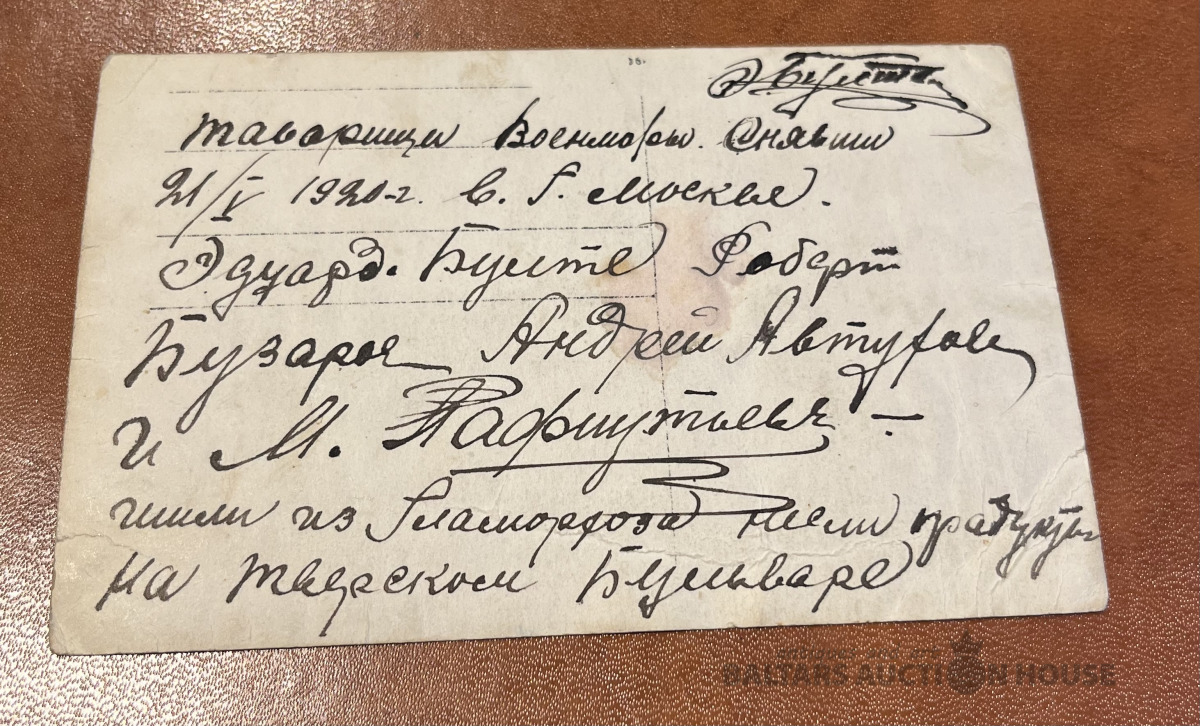 Э Булте
таварищи Военморы. Снявши
21/V 1920-г. в. г. Москве.
Эдуард. Булте Роберт
Бузаров Андрей Автухов
и М. Пафнутьевъ –
шли из Гламорхоза несли прадукты
на тверском Бульваре
BALTARS AUCTION HOUSE